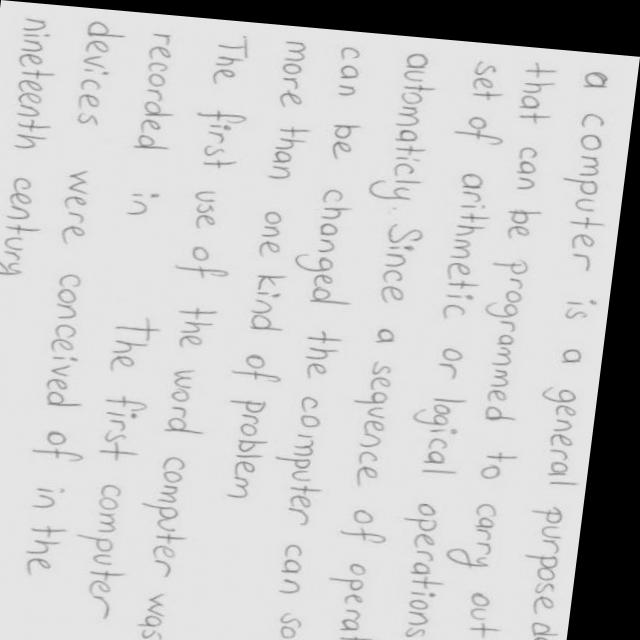 a computer is a general purpose
that can be programmed to carry out
set of arithmetic or logical operations
automaticly. Since a sequence of
can be changed the computer can
more than one kind of problen
The first use of the word computer was
recorded in The first computer
devices were conceived of in the
nineteenth century